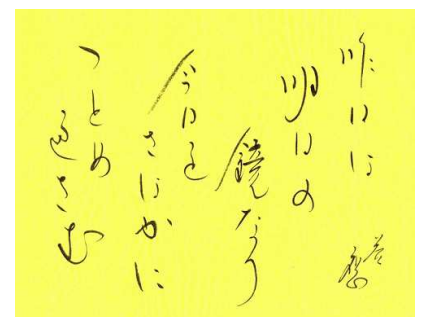 昨日は
明日の
鏡なり
今日を
さやかに
つとめ
過さむ